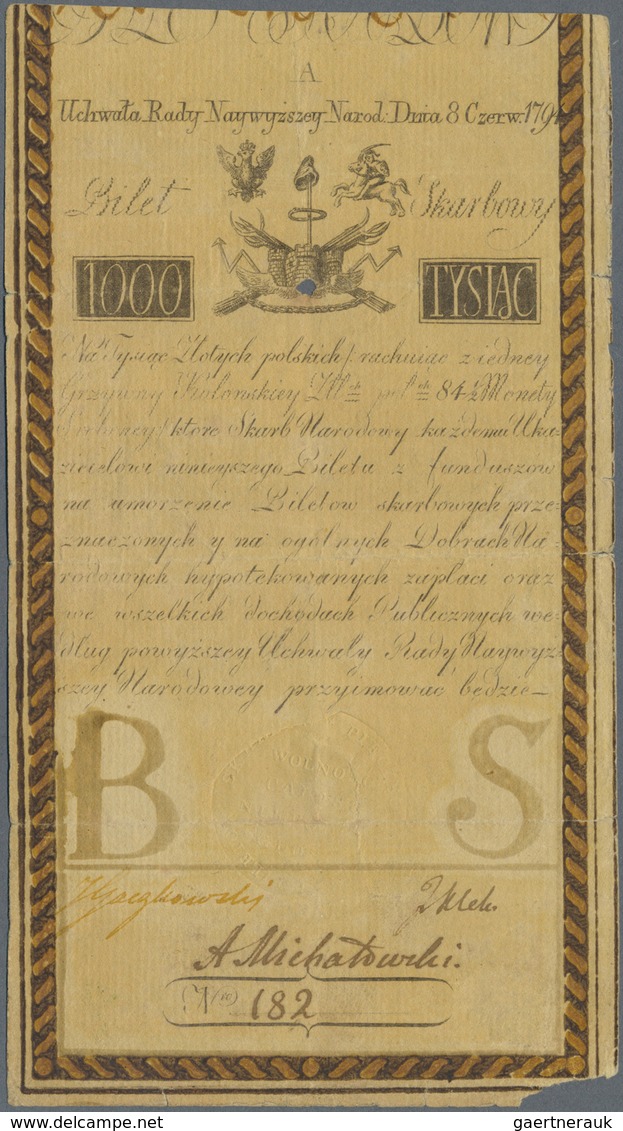 A
Uchwała Rady Naywyższey Narod: Dnia 8 Czerw. 1794
Bilet Skarbowy
1000 TYSIĄC
Na Tysiąc Złotych polskich /: rachuiąc z iedney
Grzywny Kolonskiey Zł pol 84½ Monety
Srebrney / ktore Skarb Narodowy każdemu Uka-
zicielowi ninieyszego Biletu z funduszow
na umorzenie Biletow skarbowych prze-
znaczonych y na ogólnych Dobrach Na-
rodowych hypotekowanych zapłaci oraz
we wszelkich dochodach Publicznych we-
dług powyższey Uchwały Rady Naywyż
szey Narodowey przyimować będzie
WOLNO
B S
A Michałowski.
N(ro) 182
gaertnerauk